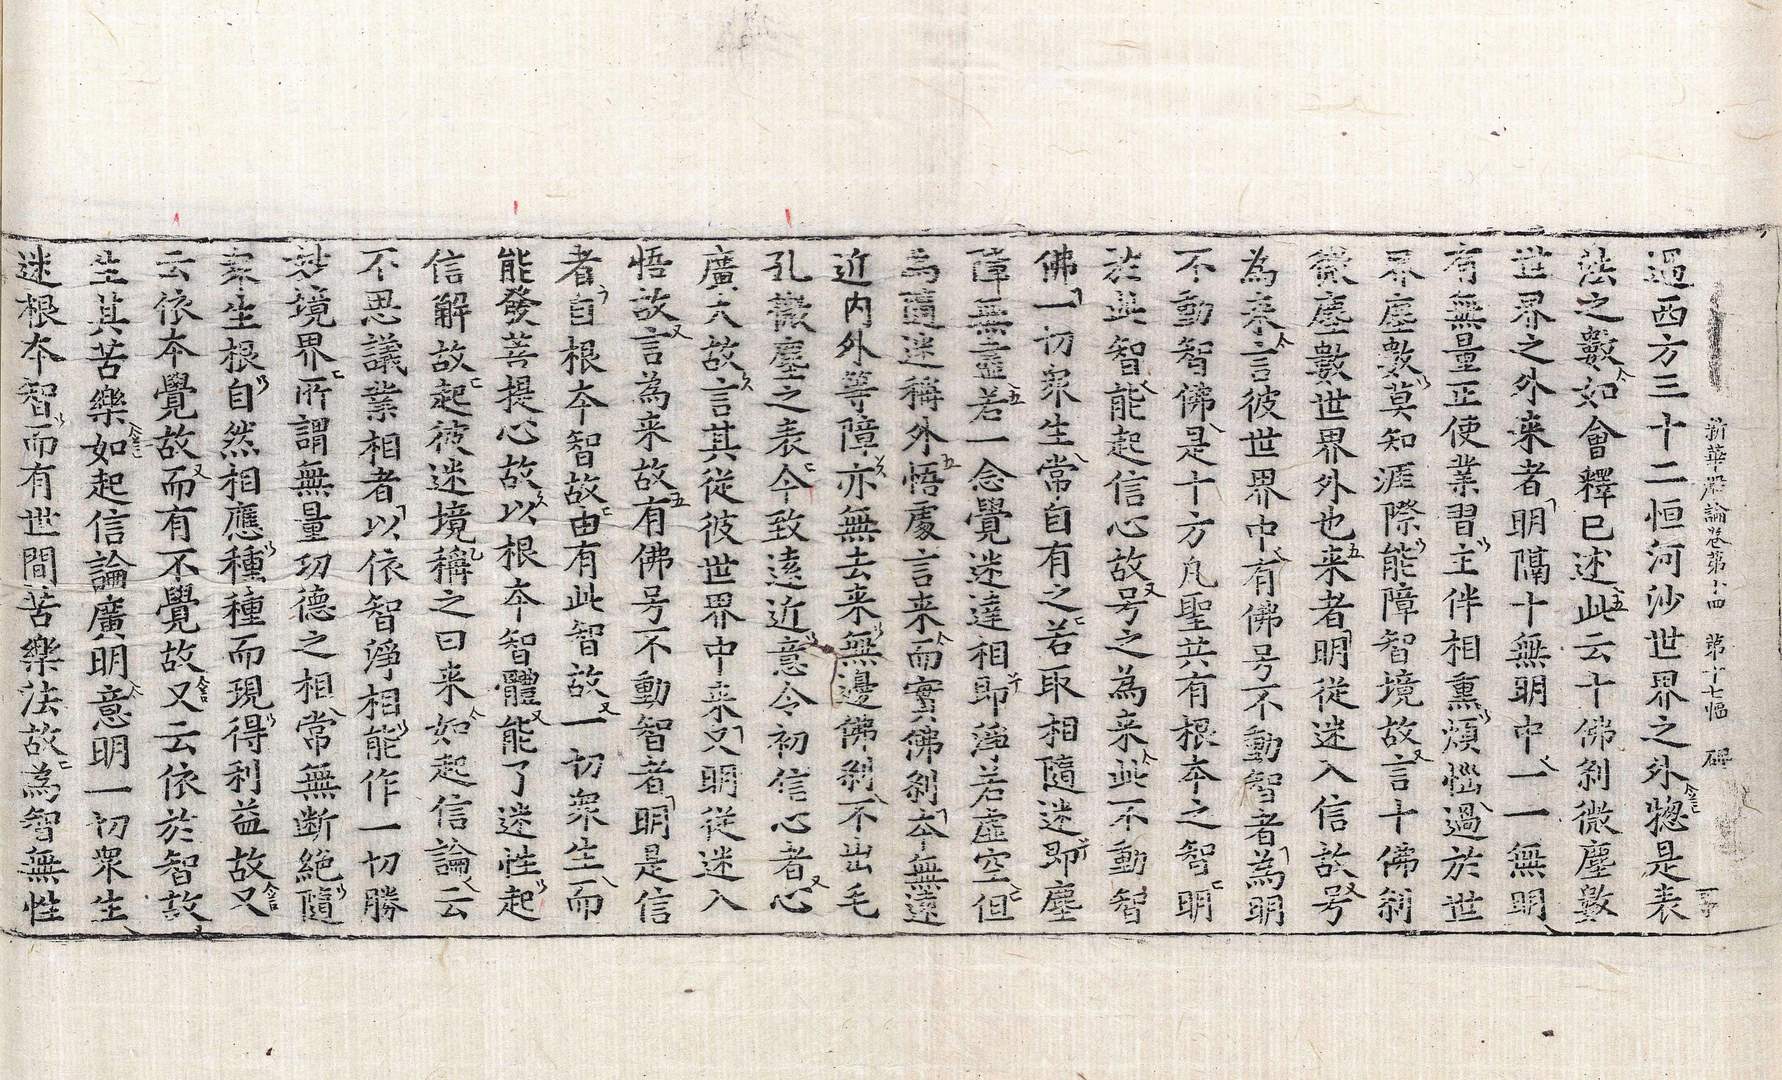 新華嚴論卷第十四 第十七幅 碑
過西方三十二恒河沙世界之外惣是表
法之數如會釋已述此云十佛刹微塵數
世界之外來者明隔十無明中一一無明
有無量正使業習主伴相熏煩惱過於世
界塵數莫知涯際能障智境故言十佛刹
微塵數世界外也来者明從迷入信故号
為来言彼世界中有佛号不動智者為明
不動智佛是十方凡聖共有根本之智明
於此智能起信心故号之為来此不動智
佛一切衆生常自有之若取相隨迷即塵
障無盡若一念覺迷達相即淨若虛空但
為隨迷稱外悟處言来而實佛刹本無遠
近内外等障亦無去来無邊佛刹不出毛
孔微塵之表今致遠近意令初信心者心
廣大故言其從彼世界中来又明從迷入
悟故言為来故有佛号不動智者明是信
者自根本智故由有此智故一切衆生而
能發菩提心故以根本智體能了迷性起
信解故起彼迷境稱之曰来如起信論云
不思議業相者以依智淨相能作一切勝
妙境界所謂無量功德之相常無断絶隨
衆生根自然相應種種而現得利益故又
云依本覺故而有不覺故又云依於智故
生其苦樂如起信論廣明意明一切衆生
迷根本智而有世間苦樂法故為智無性